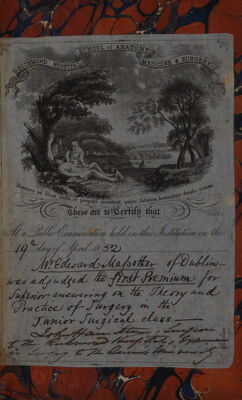 SCHOOL of ANATOMY
RICHMOND HOSPITAL
MEDICINE & SURGERY
Homines ad Deos nulla re propius accedunt quam salutem hominibus dando. CICERO
These are to Certify that
At a Public Examination held in this Institution on the
19th day of April 1852
Mr. Edward Maſsother of Dublin
was adjudged the first Premium for
Superior answering on the Theory and
Practice of Surgery in the
Junior Surgical class
Surgeon
to the Richmond Hospital,
in Surgery to the